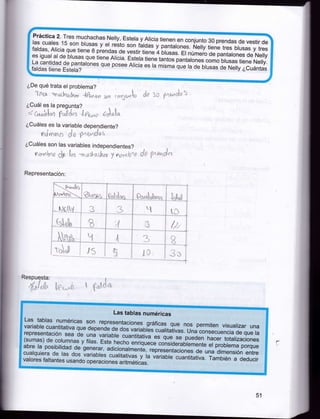 Práctica 2. Tres muchachas Nelly, Estela y Alicia tienen en conjunto 30 prendas de vestir de
las cuales 15 son blusas y el resto son faldas y pantalones. Nelly tiene tres blusas y tres
faldas, Alicia que tiene 8 prendas de vestir tiene 4 blusas. El número de pantalones de Nelly
es igual al de blusas que tiene Alicia. Estela tiene tantos pantalones como blusas tiene Nelly.
La cantidad de pantalones que posee Alicia es la misma que la de blusas de Nelly ¿Cuántas
faldas tiene Estela?
¿De qué trata el problema?
Tres muchachas tienen en conjunto de 30 prendas.
¿Cuál es la pregunta?
¿Cuántas faldas tiene Estela
¿Cuáles es la variable dependiente?
número de prendas
¿Cuáles son las variables independientes?
nombre de las muchachas y nombre de prendas
Representación:
Prendas
Nombre Blusas faldas Pantalones total
Nelly 3 3 4 10
Estela 8 1 3 12
Alicia 4 1 3 8
Total 15 5 10 30
Respuesta:
Estela tiene 1 falda
Las tablas numéricas
Las tablas numéricas son representaciones gráficas que nos permiten visualizar una
variable cuantitativa que depende de dos variables cualitativas. Una consecuencia de que la
representación sea de una variable cuantitativa es que se pueden hacer totalizaciones
(sumas) de columnas y filas. Este hecho enriquece considerablemente el problema porque
abre la posibilidad de generar, adicionalmente, representaciones de una dimensión entre
cualquiera de las dos variables cualitativas y la variable cuantitativa. También a deducir
valores faltantes usando operaciones aritméticas.
51